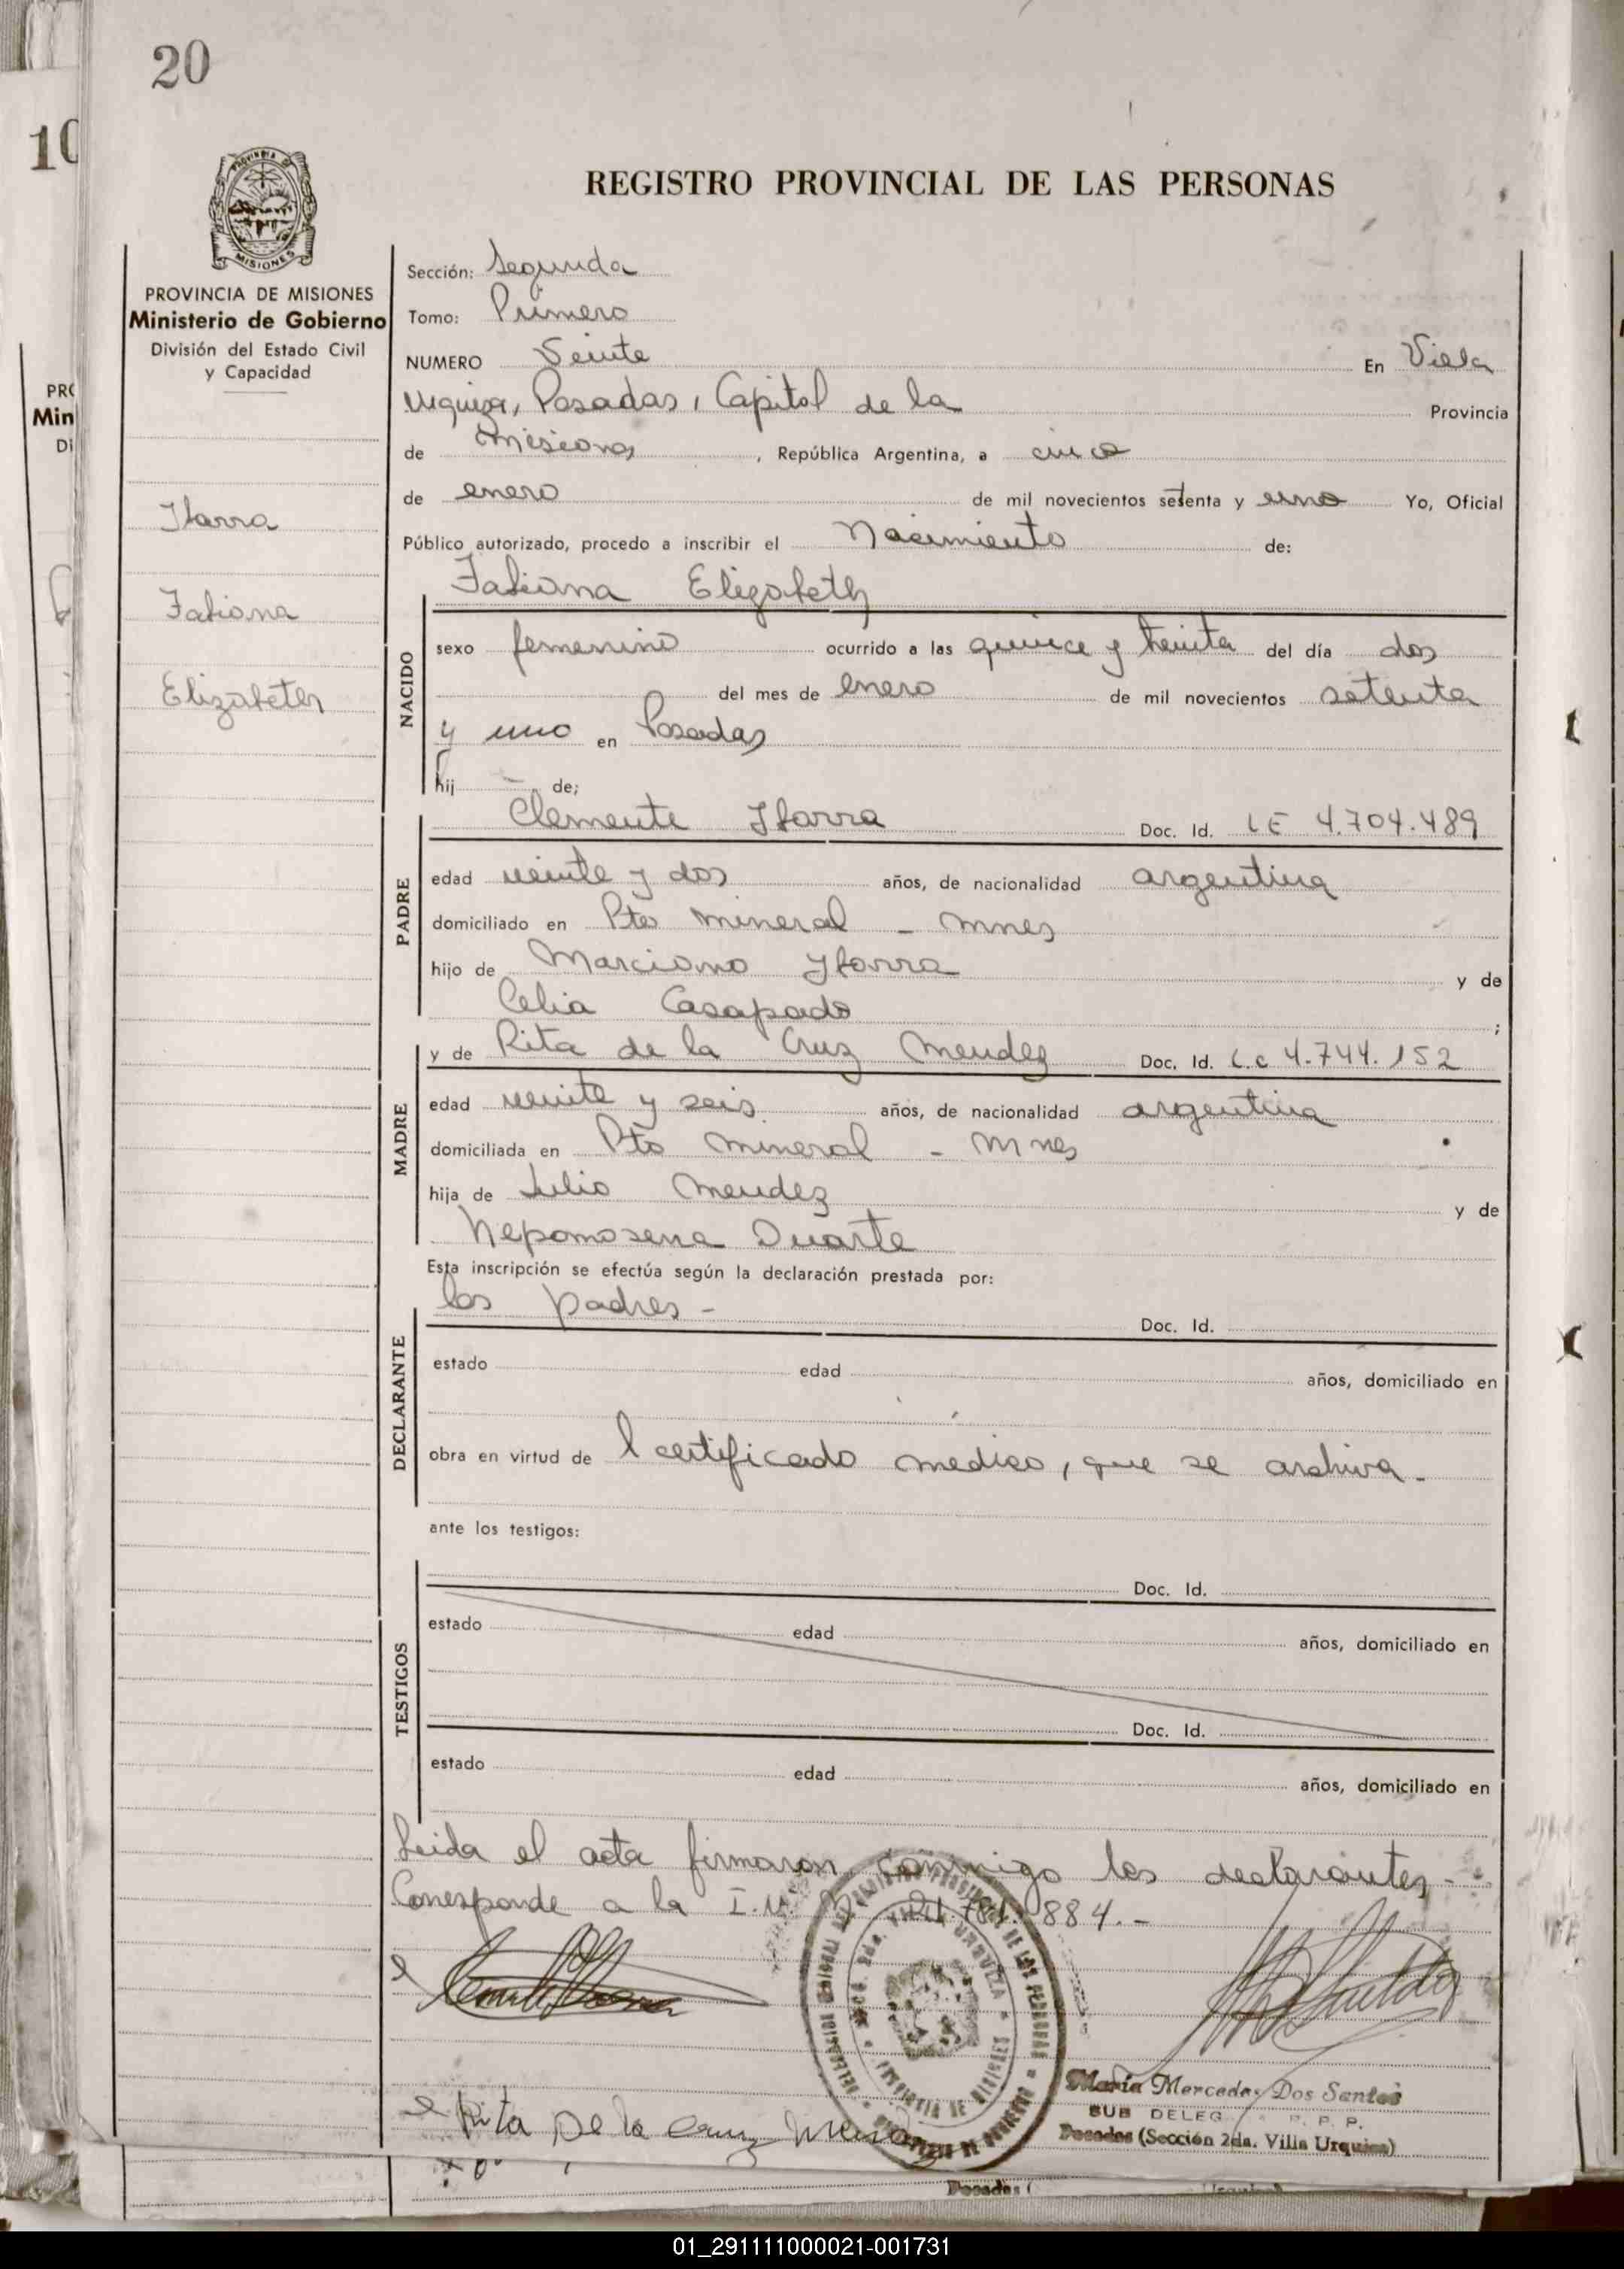 20
10
REGISTRO PROVINCIAL DE LAS PERSONAS
PROVINCIA DE
MISIONES
PROVINCIA DE MISIONES
Ministerio de Gobierno
División del Estado Civil
y Capacidad
PRO
Min
Di
Ibarra
Fabiana
Elizabeth
Sección: Segunda
Tomo: Primero
NUMERO Veinte En Villa
Urquiza, Posadas, Capital de la Provincia
de Misiones, República Argentina, a cinco
de enero de mil novecientos setenta y uno Yo, Oficial
Público autorizado, procedo a inscribir el Nacimiento de:
NACIDO
Fabiana Elizabeth
sexo femenino ocurrido a las quince y treinta del día dos
del mes de enero de mil novecientos setenta
y uno en Posadas
hij - de;
PADRE
Clemente Ibarra Doc. Id. LE 4.704.489
edad veinte y dos años, de nacionalidad argentina
domiciliado en Pto mineral - Mnes
hijo de Marciano Ybarra y de
Celia Casapado ;
MADRE
y de Rita de la Cruz Mendez Doc. Id. L.C 4.744.152
edad veinte y seis años, de nacionalidad argentina
domiciliada en Pto mineral - Mnes
hija de Julio Mendez y de
Nepomosena Duarte
Esta inscripción se efectúa según la declaración prestada por:
DECLARANTE
los padres - Doc. Id.
estado edad años, domiciliado en
obra en virtud de l certificado medico, que se archiva.
ante los testigos:
TESTIGOS
Doc. Id.
estado edad años, domiciliado en
Doc. Id.
estado edad años, domiciliado en
Leida el acta firmaron conmigo los declarantes.-
Corresponde a la I.N. 884.-
Rita De la Cruz
María Mercedes Dos Santos
SUB DELEG R. P. P.
Posadas (Sección 2da. Villa Urquiza)
Posadas (
01_291111000021-001731